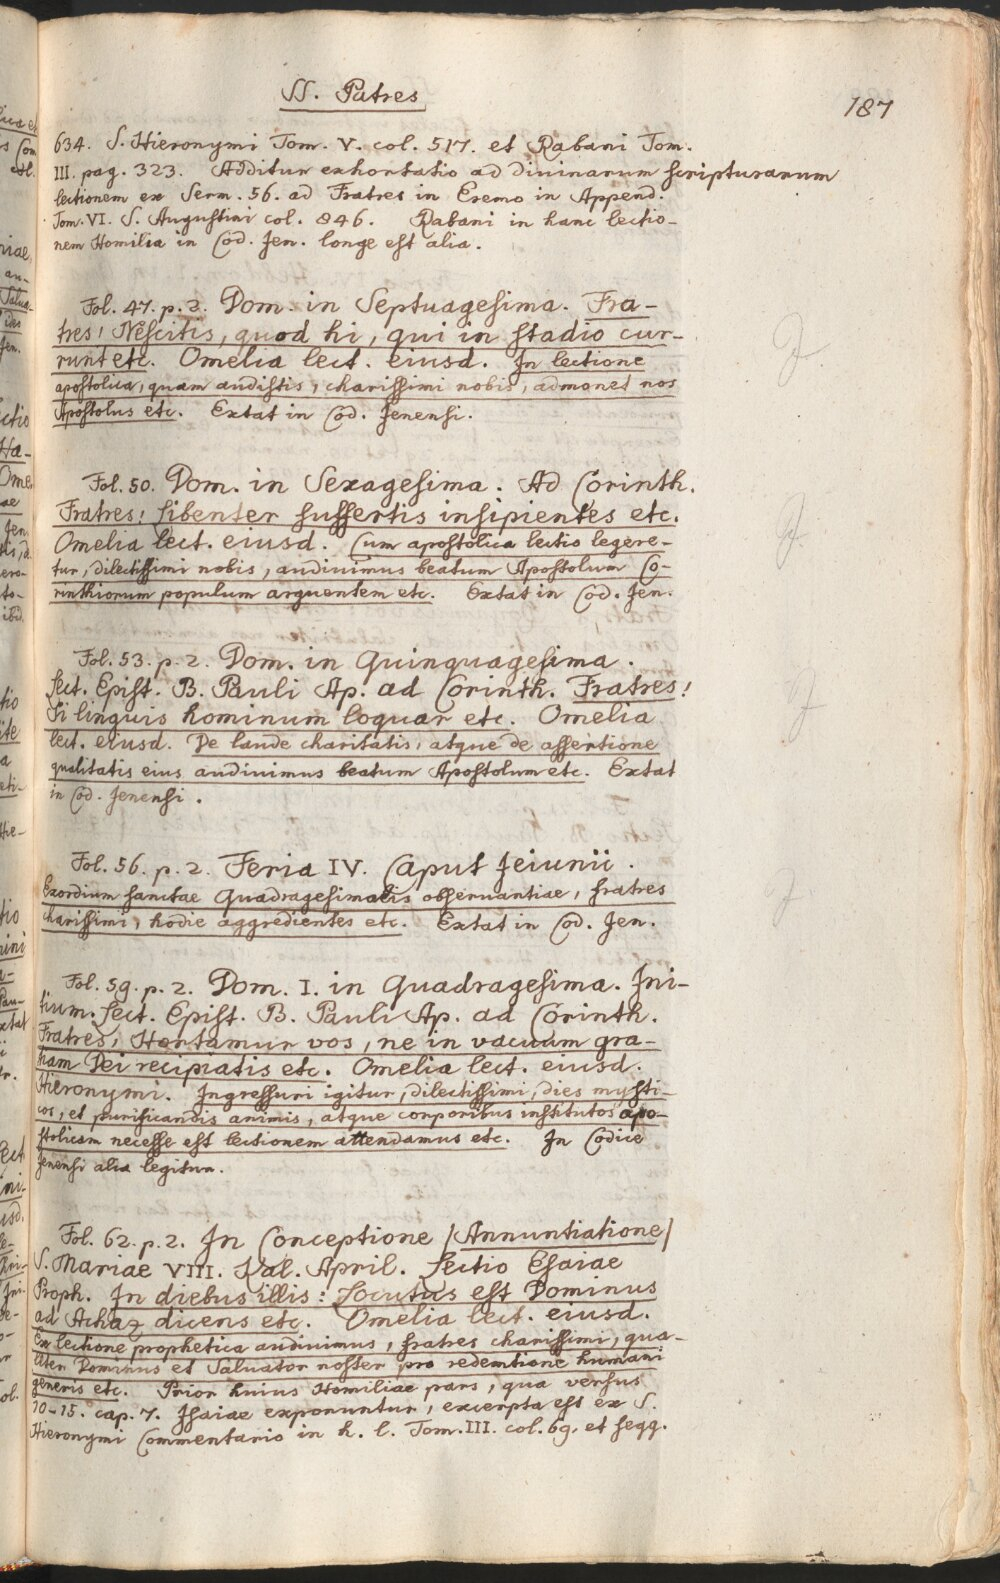 SS. Patres
187
634. S. Hieronymi Tom. V. col. 517. et Rabani Tom.
III. pag. 323. Additur exhortatio ad diuinarum scripturarum
lectionem ex Serm. 56. ad Fratres in Eremo in Append.
Tom. VI. S. Augustini col. 846. Rabani in hanc lectio-
nem Homilia in Cod. Jen. longe est alia.
Fol. 47. p. 2. Dom. in Septuagesima. Fra-
tres! Nescitis, quod hi, qui in stadio cur-
runt etc. Omelia lect. eiusd. In lectione
apostolica, quam audistis, charissimi nobis, admonet nos
Apostolus etc. Extat in Cod. Jenensi.
Fol. 50. Dom. in Sexagesima. Ad Corinth.
Fratres! Libenter suffertis insipientes etc.
Omelia lect. eiusd. Cum apostolica lectio legere-
tur, dilectissimi nobis, audiuimus beatum Apostolum Co-
rinthiorum populum arguentem etc. Extat in Cod. Jen.
Fol. 53. p. 2. Dom. in Quinquagesima.
Lect. Epist. B. Pauli Ap. ad Corinth. Fratres!
Si linguis hominum loquar etc. Omelia
lect. eiusd. De laude charitatis, atque de assertione
qualitatis eius audiuimus beatum Apostolum etc. Extat
in Cod. Jenensi.
Fol. 56. p. 2. Feria IV. Caput Jeiunii.
Exordium sanctae Quadragesimalis obseruantiae, fratres
charissimi, hodie aggredientes etc. Extat in Cod. Jen.
Fol. 59. p. 2. Dom. I. in Quadragesima. Ini-
tium. Lect. Epist. B. Pauli Ap. ad Corinth.
Fratres, Hortamur vos, ne in vacuum gra-
tiam Dei recipiatis etc. Omelia lect. eiusd.
Hieronymi. Ingressuri igitur, dilectissimi, dies mysti-
cos, et purificandis animis, atque corporibus institutos apo-
stolicam necesse est lectionem attendamus etc. In Codice
Jenensi alia legitur.
Fol. 62. p. 2. In Conceptione (Annuntiatione)
S. Mariae VIII. Kal. April. Lectio Esaiae
Proph. In diebus illis: Locutus est Dominus
ad Achaz dicens etc. Omelia lect. eiusd.
Ex lectione prophetica audiuimus, fratres charissimi, qua-
liter Dominus et Saluator noster pro redemtione humani
generis etc. Prior huius Homiliae pars, qua versus
10-15. cap. 7. Jsaiae exponuntur, excerpta est ex S.
Hieronymi Commentario in h. l. Tom. III. col. 69. et seqq.